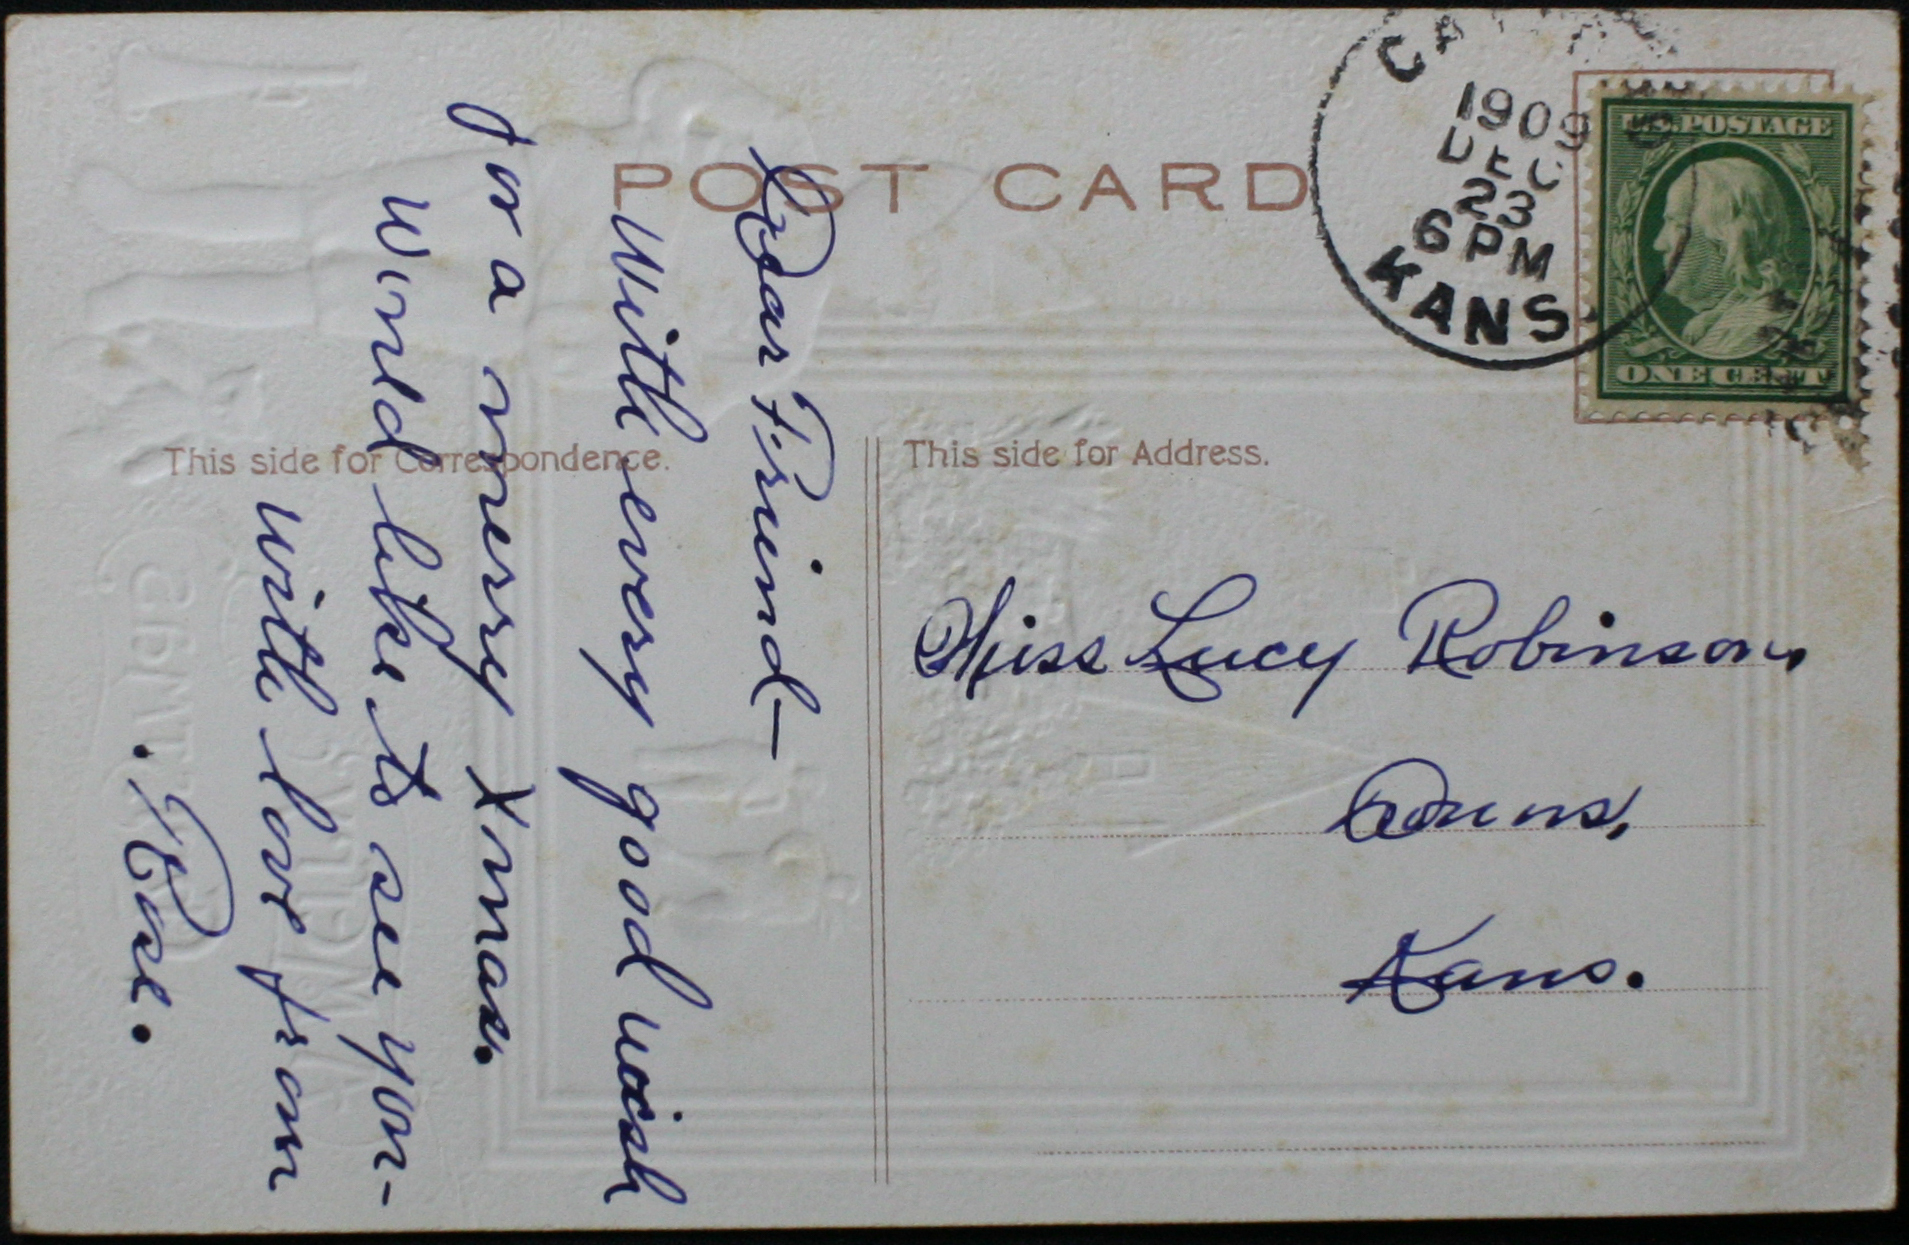 POST CARD
1909
DEC
23
6 PM
KANS
U.S. POSTAGE
ONE CENT
This side for Correspondence.
This side for Address.
Dear Friend—
With every good wish
for a merry Xmas.
Would like to see you—
with love from
Rose.
Miss Lucy Robinson,
Kans.